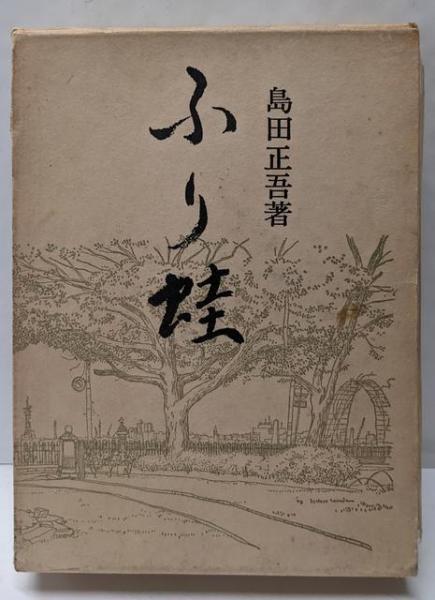 島田正吾著
ふり蛙